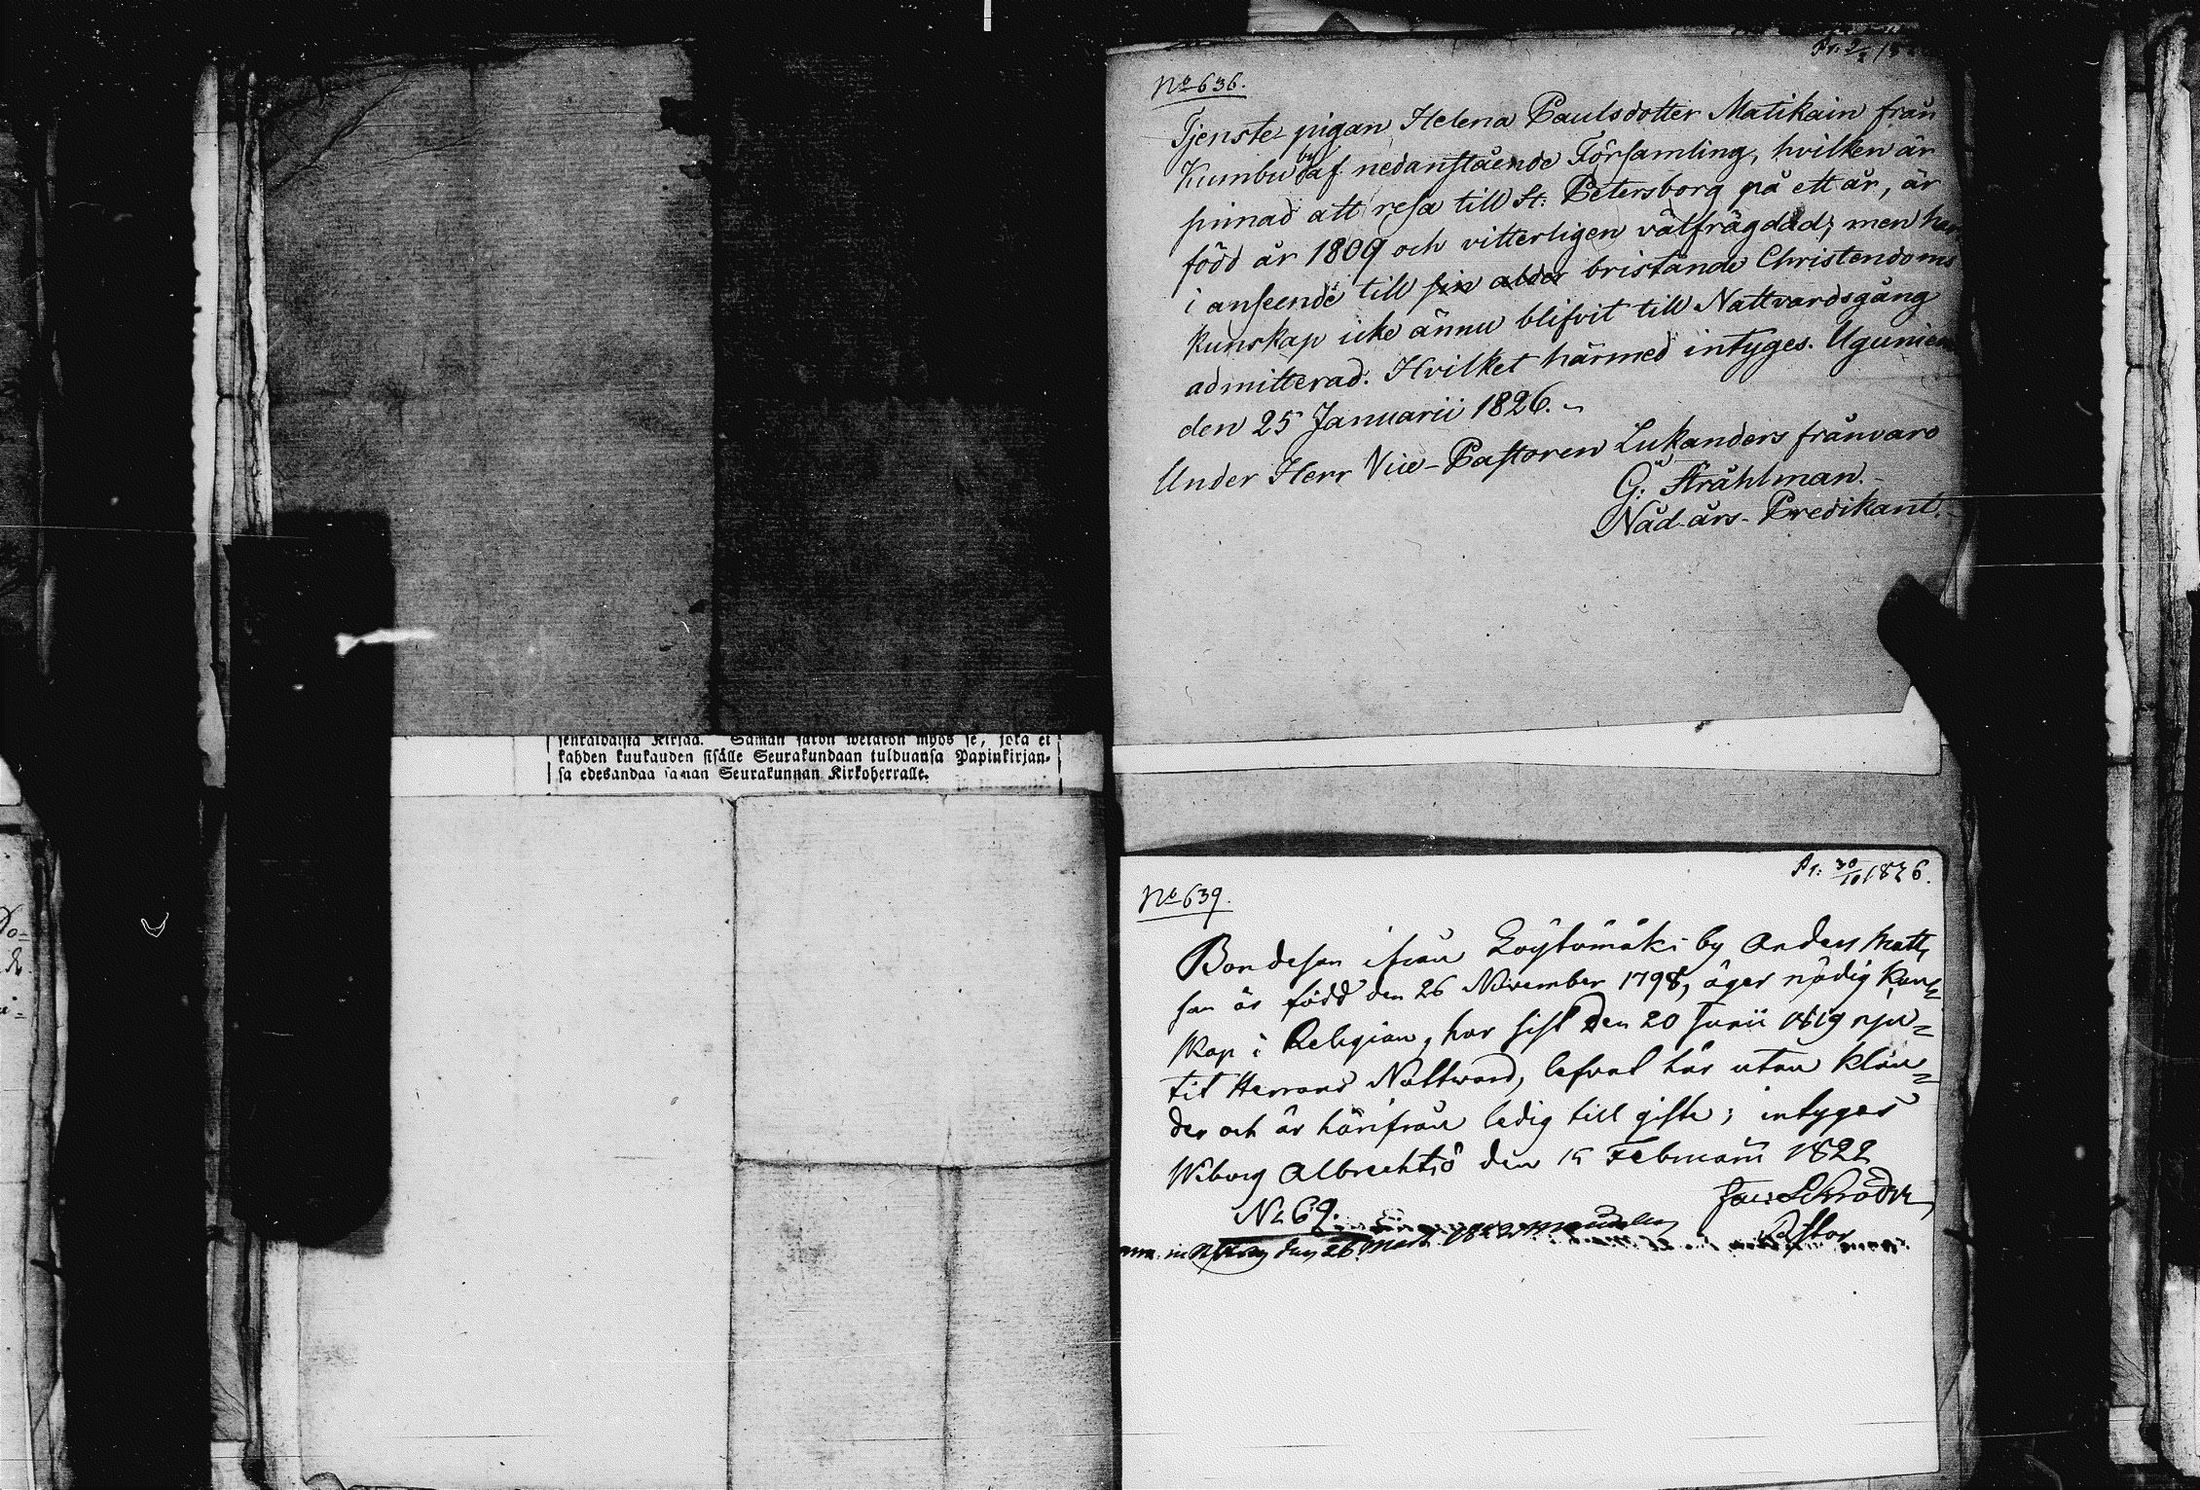 senraivaista Kirjaa. Saman saron wetäron myös se, joka ei
kahden kuukauden sisälle Seurakundaan tulduansa Papinkirjan-
sa edesandaa saman Seurakunnan Kirkoherralle.
No 636.
Tjenste pigan Helena Paulsdotter Matikain från
Kumbu by af nedanstående Församling, hvilken är
sinnad att resa till St: Petersborg på ett år, är
född år 1809 och vitterligen välfrägdad; men har
i anseende till sin alder bristande Christendoms
kunskap icke ännu blifvit till Nattvardsgång
admitterad. Hvilket härmed intyges. Uguniemi
den 25 Januarii 1826.
Under Herr Vice-Pastoren Lukanders frånvaro
G: Stråhlman.
Nåd-års-Predikant.
No 639.
Pr: 30/10 1826.
Bondeson ifrån Löytömäki by Anders Matts
son är född den 26 November 1798, äger nödig kun=
skap i Religion, har sist den 20 Junii 1819 nju=
tit Herrans Nattward, lefvat här utan klan=
der och är härifrån ledig till gifte; intyges
Wiborg den 15 Februarii 1822
No 69.
Schröder
Pastor
den 26 Mart 1822